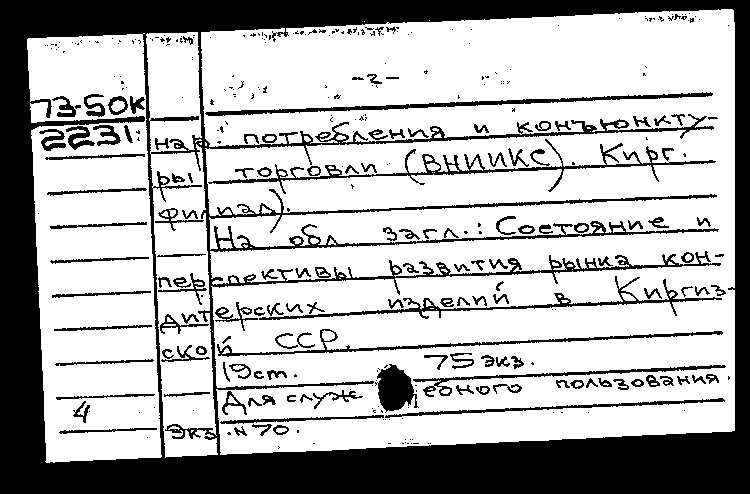 -2-
73-50к
2231:
нар. потребления и конъюнкту-
ры торговли (ВНИИКС). Кирг.
филиал).
На обл загл.: Состояние и
перспективы развития рынка кон-
дитерских изделий в Киргиз-
ской ССР.
19ст. 75 экз.
Для служебного пользования.
4
Экз. №70.